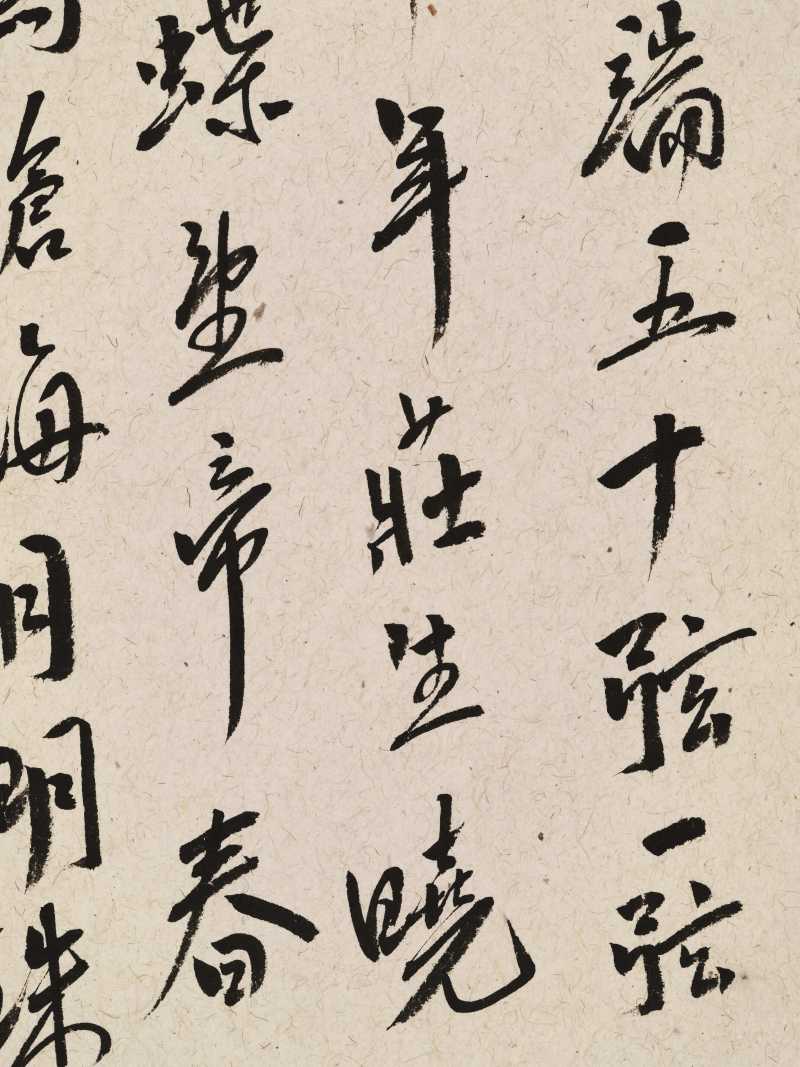 端五十弦一弦
年莊生曉
蝶望帝春
滄海月明珠